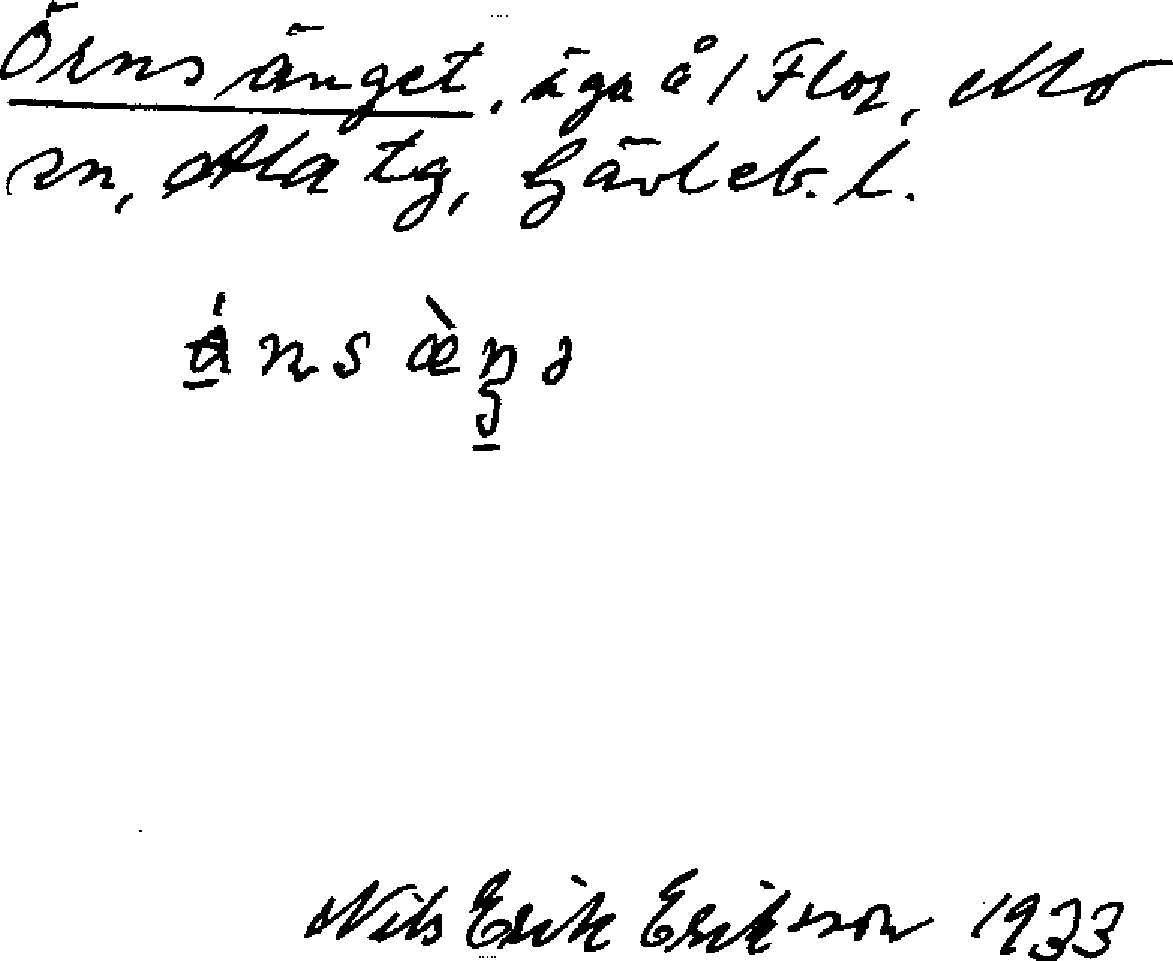 Örnsänget, äga å 1 Flor, Mo
sn, Ala tg, Gävleb. l.
Nils Erik Erikson 1933